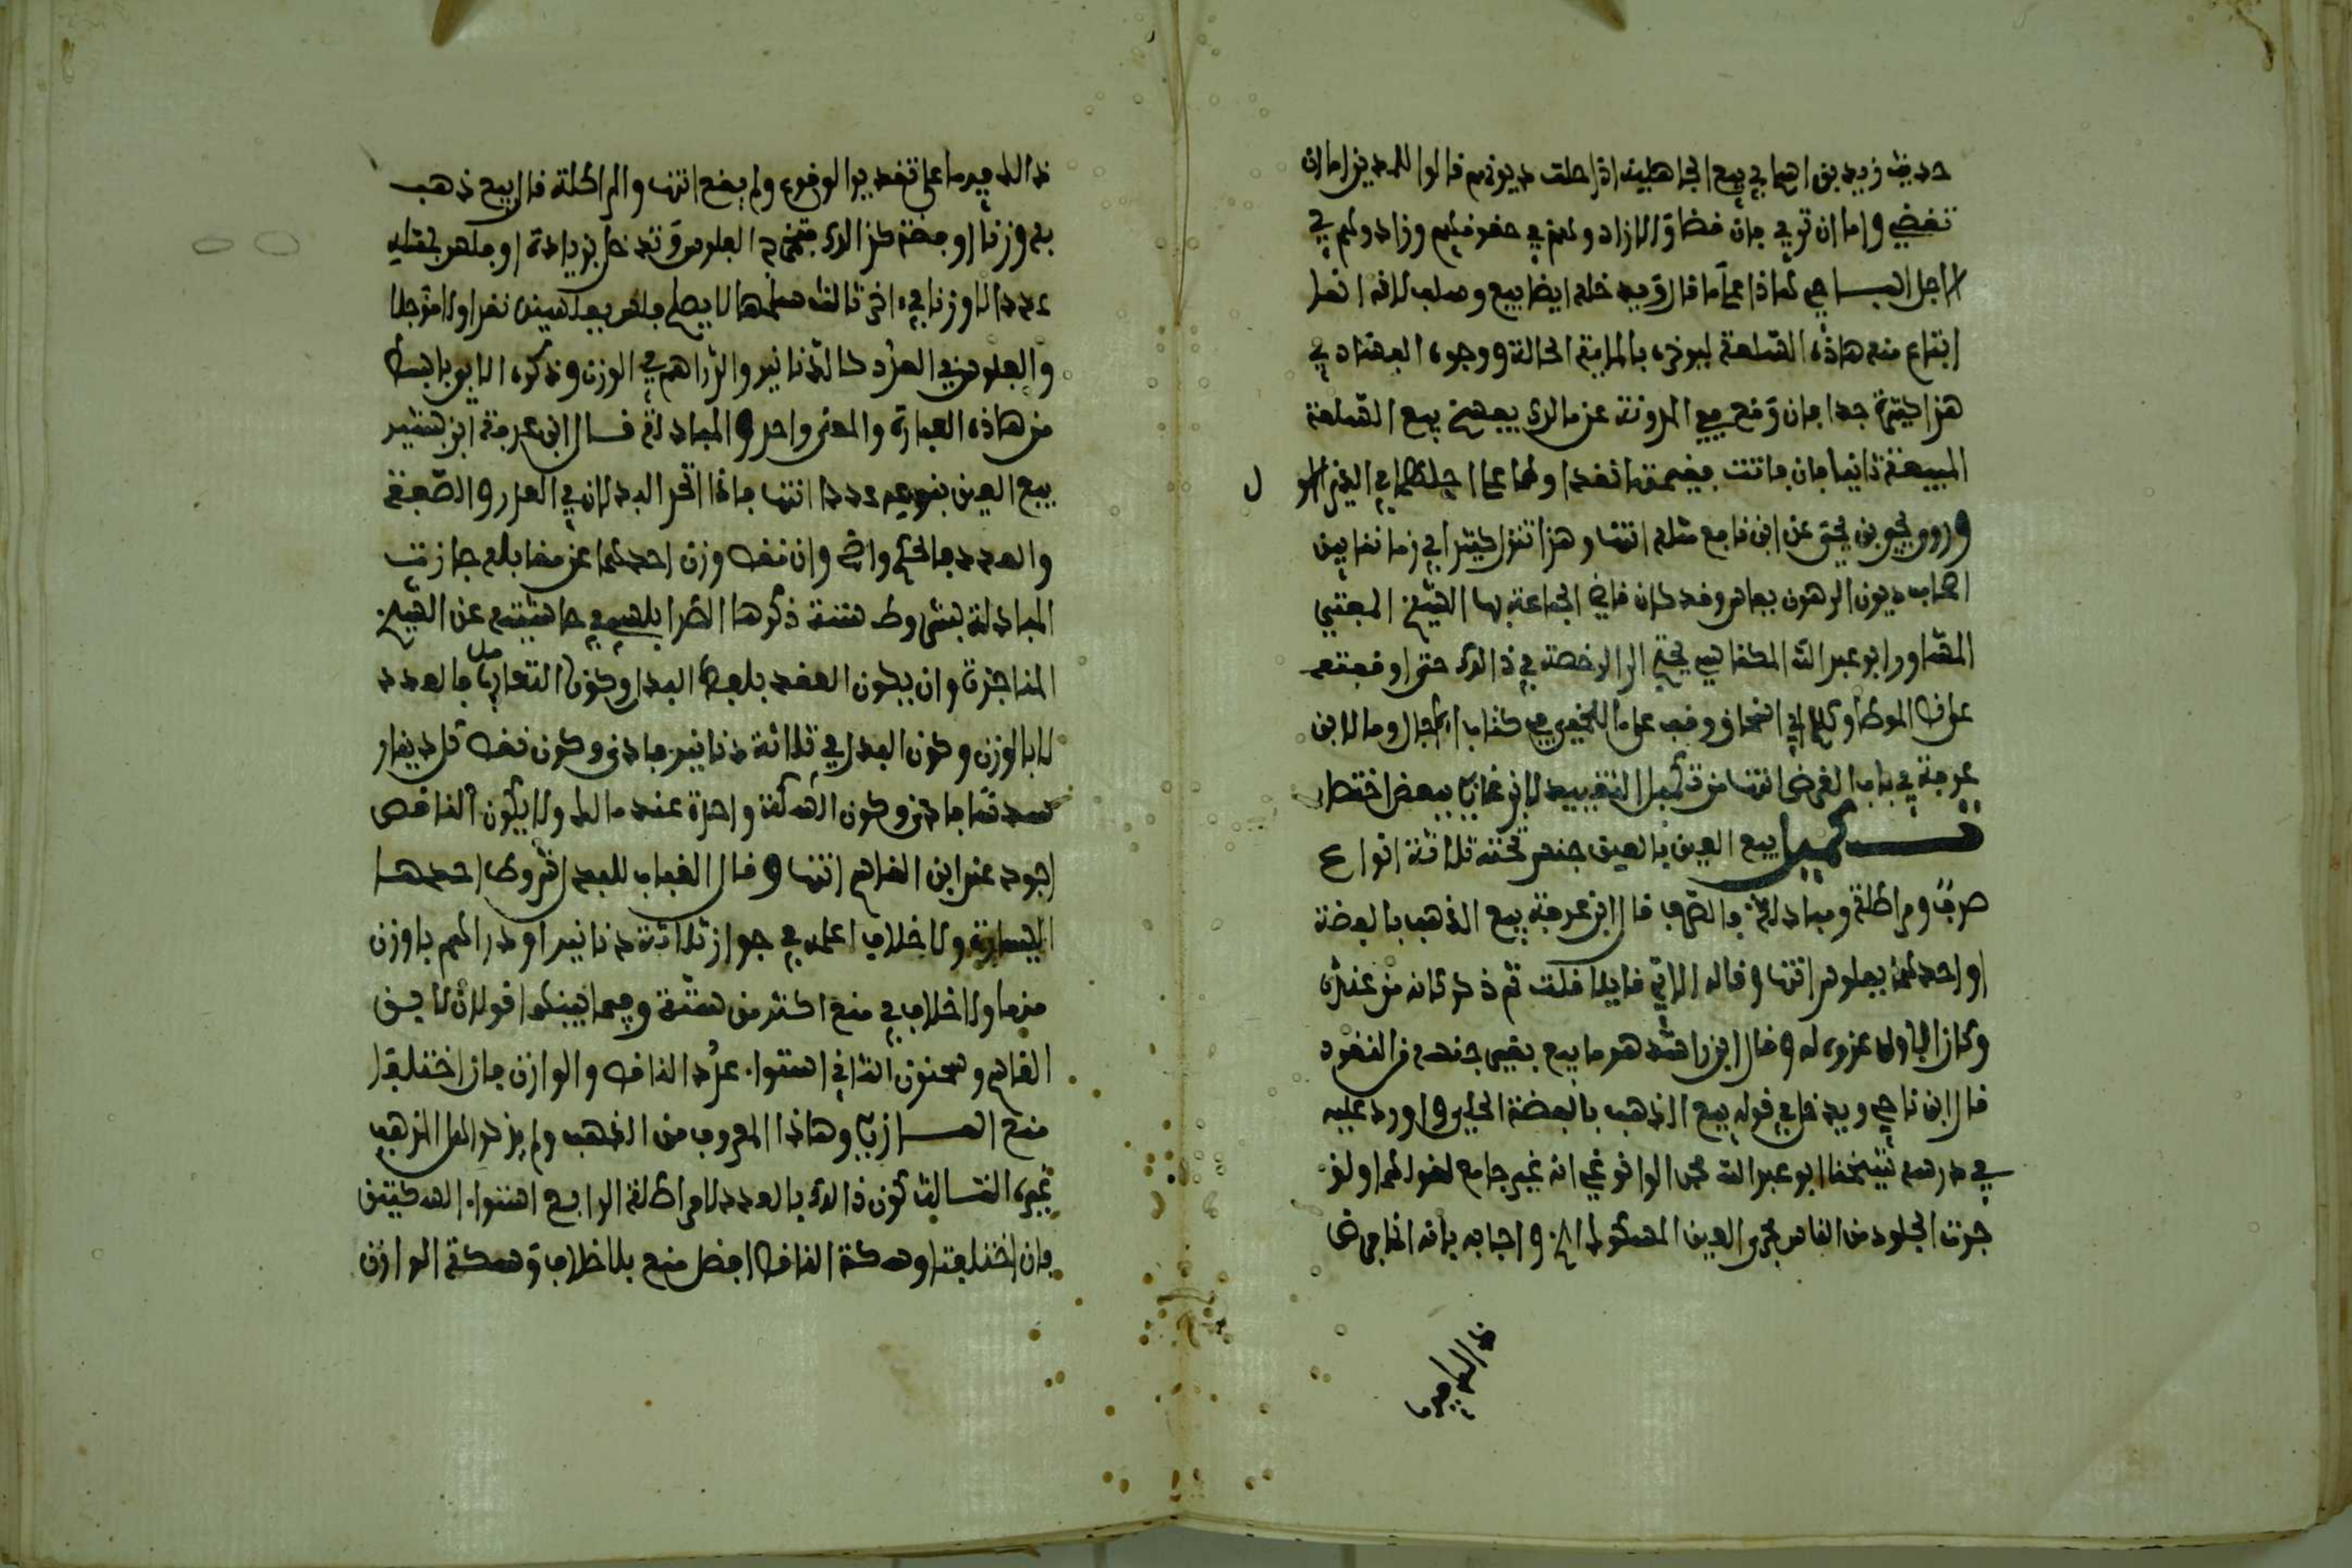 حديث زيد بن اسلم في بيع الجاهلية اذا حلت ديونهم قالوا للمدين اما ان
تقضي واما ان تربي فان قضاو الا زادوهم في حقوقهم وزادوهم في
الاجل الباجي هذا على ما قال ويدخله ايضا بيع وسلف لانه انما
ابتاع منه هاذه السلعة ليوخره بالماية الحالة ووجوه الفساد في
هذا كثيرة جدا فان وقع ففي المدونة عن مالك يفسخ بيع السلعة
المبيعة ثانيا فان فاتت فقيمتها نقدا وهما على اجلهما في الدين الاول
وروى يحيى بن يحيى عن ابن نافع مثله انتها وهذا تنزل كثيرا في زماننا بين
اصحاب ديون الرهون بفاس وقد كان قاضي الجماعة بها الشيخ المفتي
المشاور ابو عبد الله المكناسي يجنح الى الرخصة في ذالك حتى اوقفته
على نص الموطا وكلام ابي اسحاق ووقف على ما للخمي في كتاب الاجال وما لابن
عرفة في باب القرض انتها من تكميل التقييد لابن غازي ببعض اختصار
تكميل بيع العين بالعين جنس تحته ثلاثة انواع
صرف ومراطلة ومبادلة فالصرف قال ابن عرفة بيع الذهب بالفضة
او احدهما بفلوس انتها وقاله الابي قايلا قلت ثم ذكره كانه من عنده
وكان الاولى عزوه له وقال ابن راشد هو ما بيع بغير جنسه من النقود
قال ابن ناجي ويدخل في قوله بيع الذهب بالفضة الحلي واورد عليه
في درسه شيخنا ابو عبد الله محمد الوانوغي انه غير جامع لقولها ولو
جرت الجلود بين الناس مجرى العين المسكوك الخ واجابه بانه انما جرى
ذالك فيها
ذالك فيها على تقدير الوقوع ولم يقع انتها والمراطلة قال بيع ذهب
به وزنا او فضة كذالك فتخرج الفلوس وتدخل بزيادة او فلس بمثله
عددا لا وزنا في اخر ثالث سلمها لا يصلح فلس بفلسين نقدا ولا موجلا
والفلوس في العدد كالدنانير والدراهم في الوزن وذكره الابي بابسط
من هاذه العبارة والمعنى واحد والمبادلة قال ابن عرفة ابن بشير
بيع العين بنوعه عددا انتها فاذا اتحد البدلان في القدر والصفة
والعدد فالحكم واضح وان نقص وزن احدهما عن مقابله جازت
المبادلة بشروط ستة ذكرها الطرابلسي في حاشيته عن الشيخ
المناجزة وان يكون العقد بلفظ البدل وكون التعامل فالعدد
لا بالوزن وكون البدل في ثلاثة دنانير فادنى وكون نقص كل دينار
سدسا فادنى وكون السكة واحدة عند مالك ولا يكون الناقص
اجود عند ابن القاسم انتها وقال القباب للبدل شروط احدها
اليسارة ولا خلاف اعلمه في جواز ثلاثة دنانير او دراهم باوزن
منها ولا خلاف في منع اكثر من ستة وفيما بينهما قولان لابن
القاسم وسحنون الثاني استواء عدد الناقص والوازن فان اختلفا
منع المازري وهاذا المعروف من المذهب ولم يذكر اهل المذهب
غيره الثالث كون ذالك بالعدد لا مراطلة الرابع استواء السكتين
فان اختلفتا وسكة الناقص افضل منع بلا خلاف وسكة الوازن